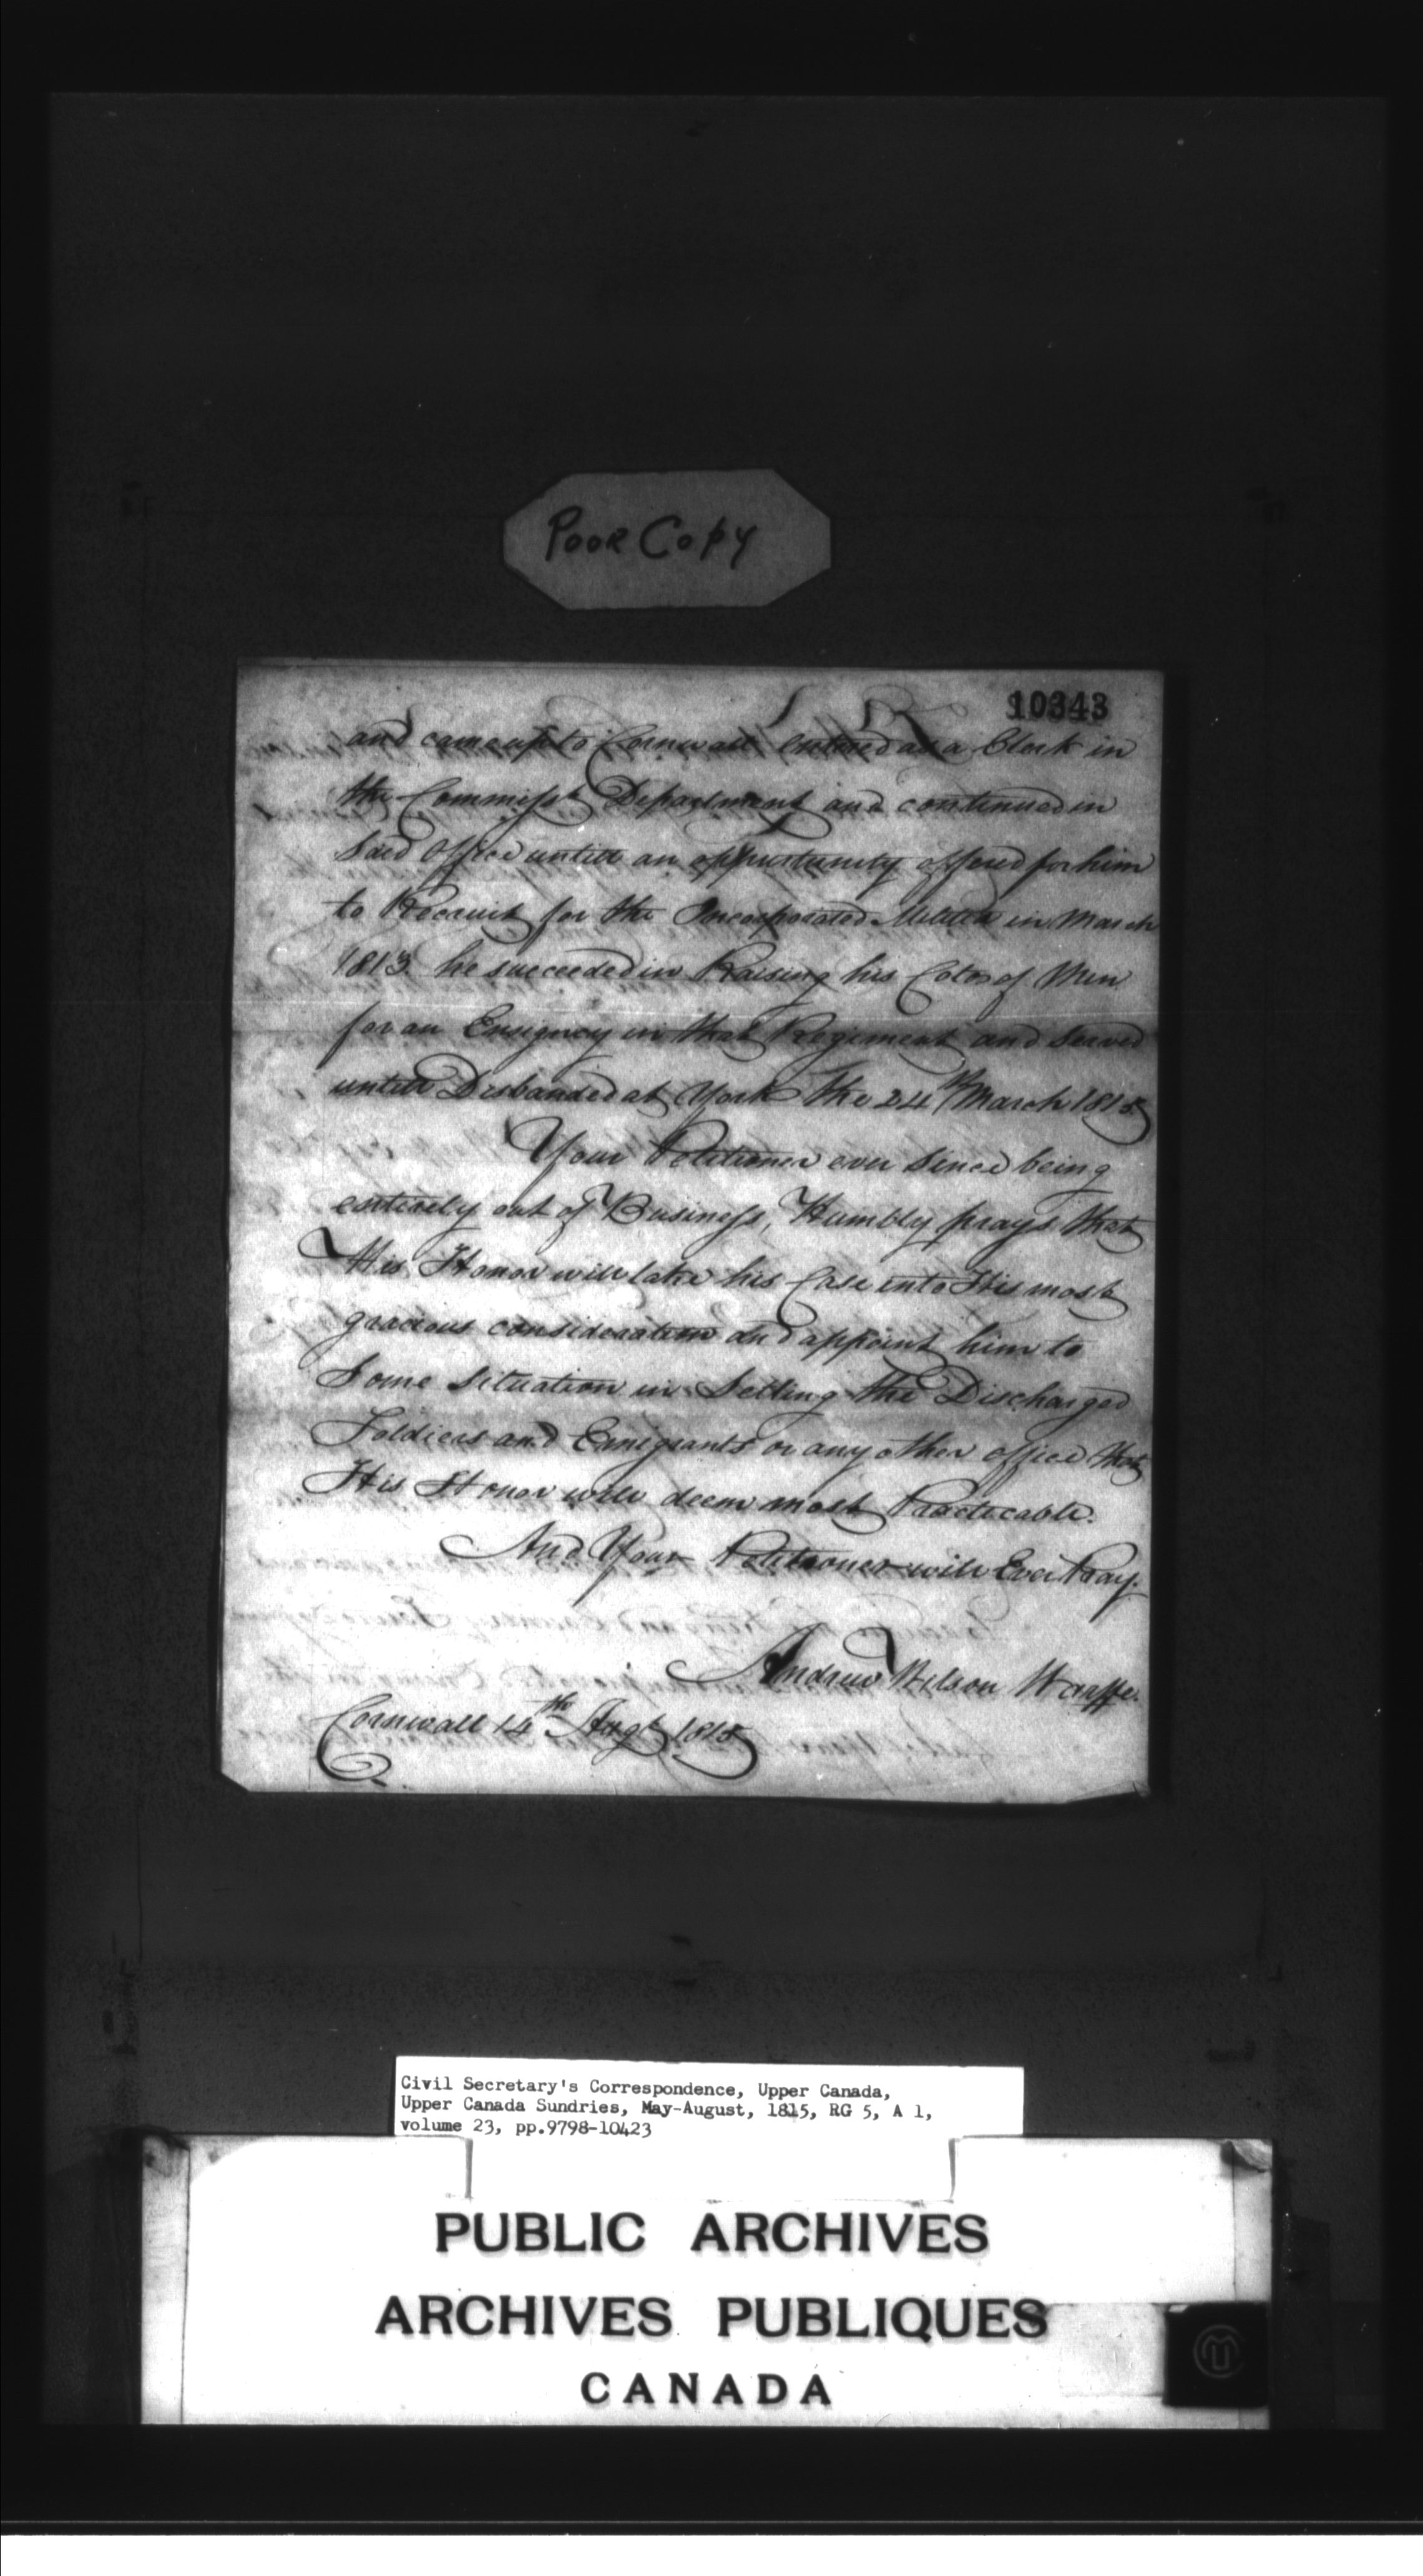 Poor Copy
10343
and came up to Cornwall Entered as a Clerk in
the Commisst Department and continued in
said Office untill an oppurtunity offered for him
to Recruit for the Incorporated Militia in March
1813. he succeeded in Raising his Coto of Men
for an Ensigncy in that Regiment and Served
untill Disbanded at York The 24th March 1815
Your Petitioner ever since being
entirely out of Business, Humbly prays that
His Honor will take his Case into His most
gracious consideration and appoint him to
Some situation in Setling the Discharged
Soldiers and Emigrants or any other office that
His Honor will deem most Practicable.
And Your Petitioner will Ever Pray.
Andrew Wilson Warffe.
Cornwall 14th Augt 1815
Civil Secretary's Correspondence, Upper Canada,
Upper Canada Sundries, May-August, 1815, RG 5, A 1,
volume 23, pp.9798-10423
PUBLIC ARCHIVES
ARCHIVES PUBLIQUES
CANADA